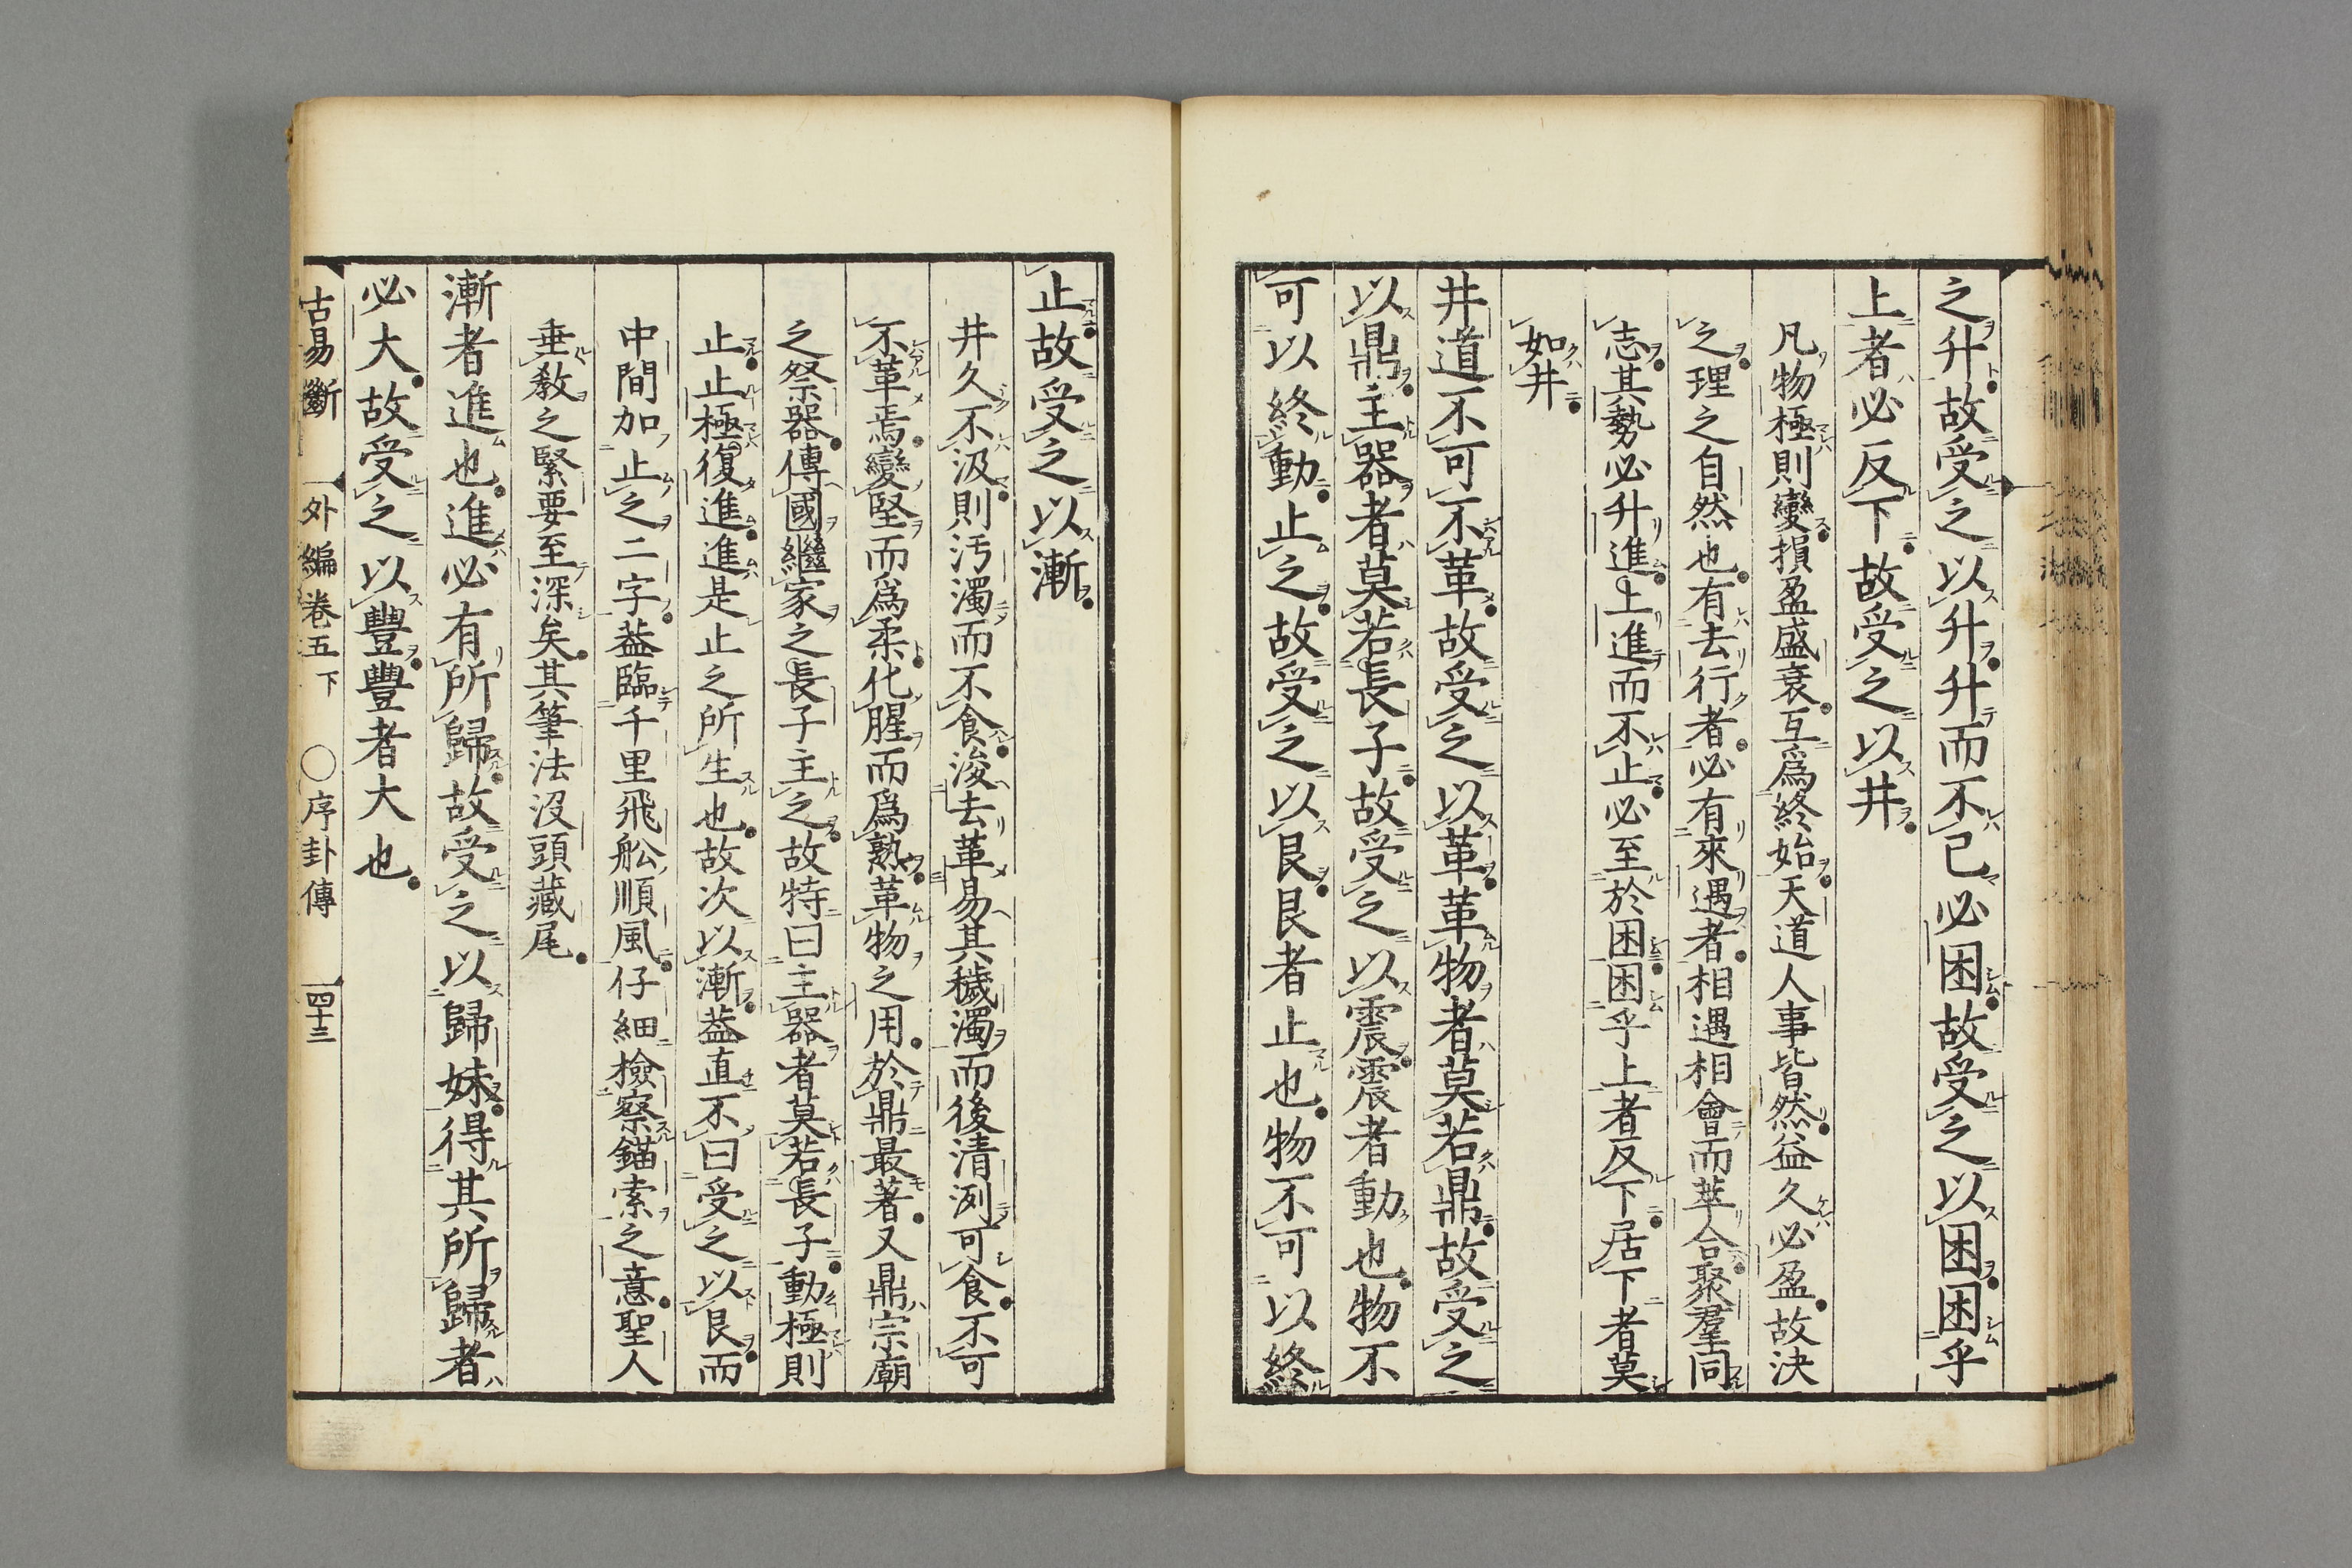 之升故受之以升升而不已必困故受之以困困乎
上者必反下故受之以井
凡物極則變損盈盛衰互爲終始天道人事皆然益久必盈故決
之理之自然也有去行者必有來遇者相遇相會而萃合聚羣同
志其勢必升進上進而不止必至於困困乎上者反下居下者莫
如井
井道不可不革故受之以革革物者莫若鼎故受之
以鼎主器者莫若長子故受之以震震者動也物不
可以終動止之故受之以艮艮者止也物不可以終
止故受之以漸
井久不汲則汚濁而不食浚去革易其穢濁而後清洌可食不可
不革焉變堅而爲柔化腥而爲熟革物之用於鼎最著又鼎宗廟
之祭器傳國繼家之長子主之故特曰主器者莫若長子動極則
止止極復進進是止之所生也故次以漸葢直不曰受之以艮而
中間加止之二字葢臨千里飛舩順風仔細檢察錨索之意聖人
垂教之緊要至深矣其筆法沒頭藏尾
漸者進也進必有所歸故受之以歸妹得其所歸者
必大故受之以豐豐者大也
古易斷 外編卷五下 ○序卦傳 四十三